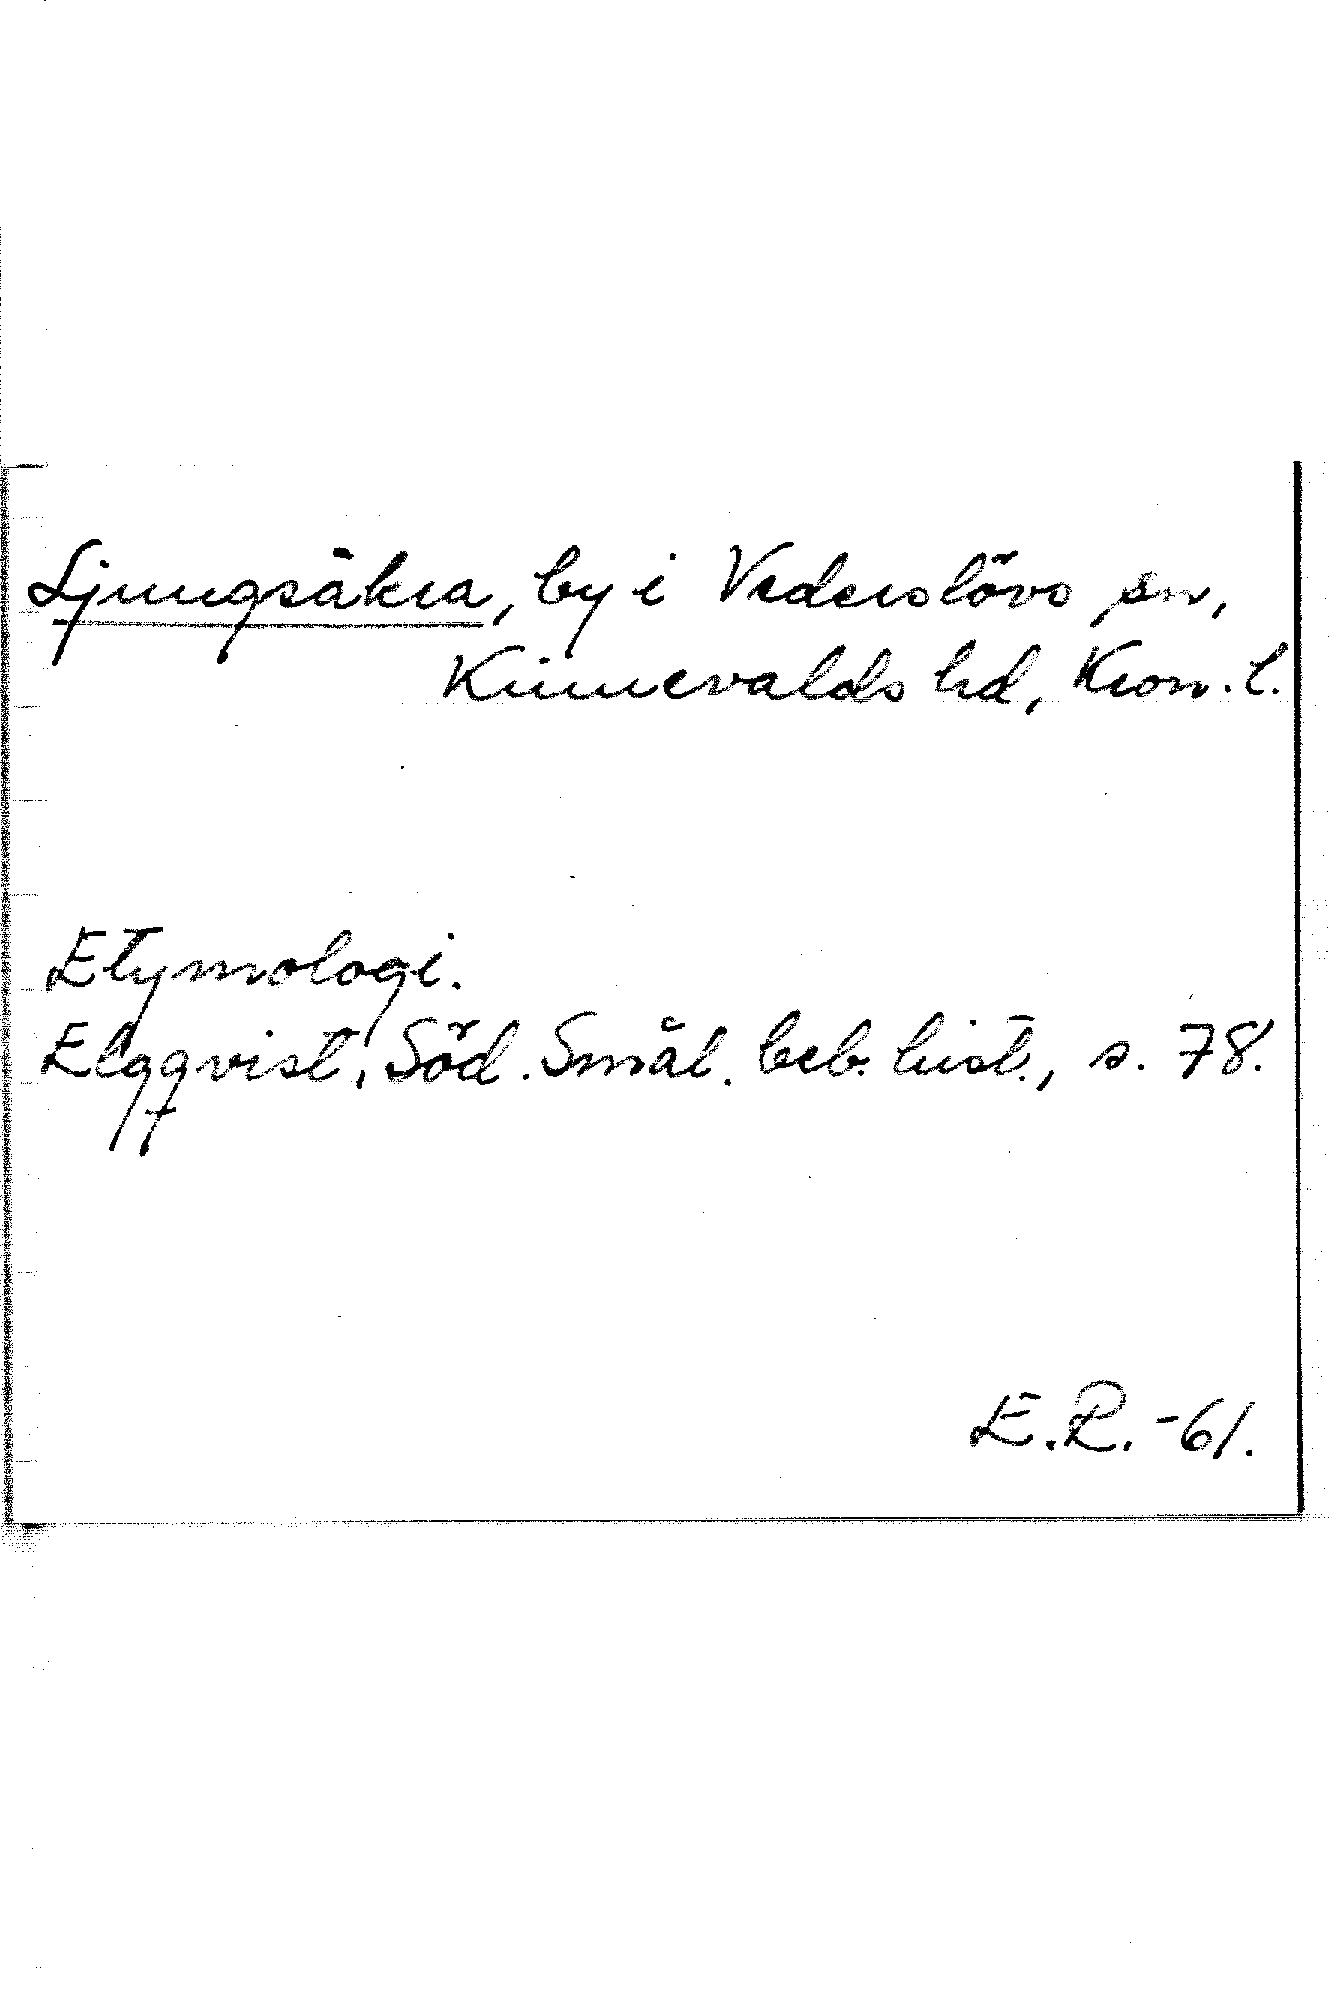 Ljungsåkra, by i Vederslövs sn,
Kinnevalds hd, Kron. l.
Etymologi.
Elgqvist, Söd. Smål. beb. hist., s. 78.
E.R. -61.